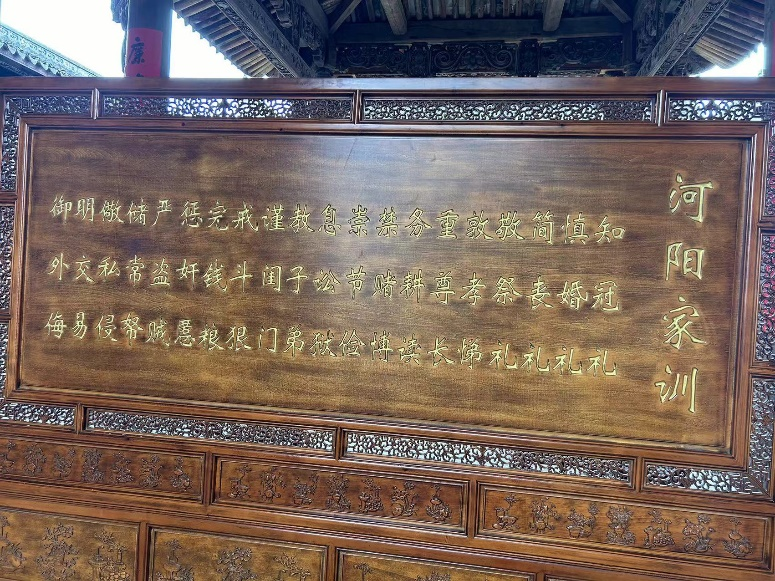 河阳家训
知冠礼
慎婚礼
简丧礼
敬祭礼
敦孝悌
重尊长
务耕读
禁赌博
崇节俭
息讼狱
教子弟
谨闺门
戒斗狠
完钱粮
惩奸慝
严盗贼
储常帑
儆私侵
明交易
御外侮
康